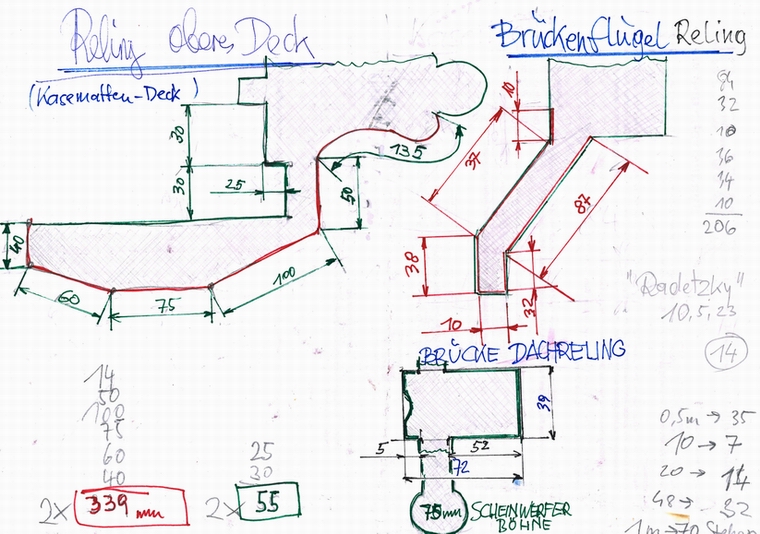 Reling oberes Deck
(Kasematten-Deck)
30
30
25
135
50
40
60
75
100
14
50
100
75
60
40
2x 339 mm
25
30
2x 55
Brückenflügel Reling
10
37
87
38
32
10
84
32
10
36
34
10
206
"Radetzky"
10,5,23
14
BRÜCKE DACHRELING
39
5
52
72
75mm
SCHEINWERFER
BÜHNE
0,5m → 35
10 → 7
20 → 14
48 → 32
1m → 70